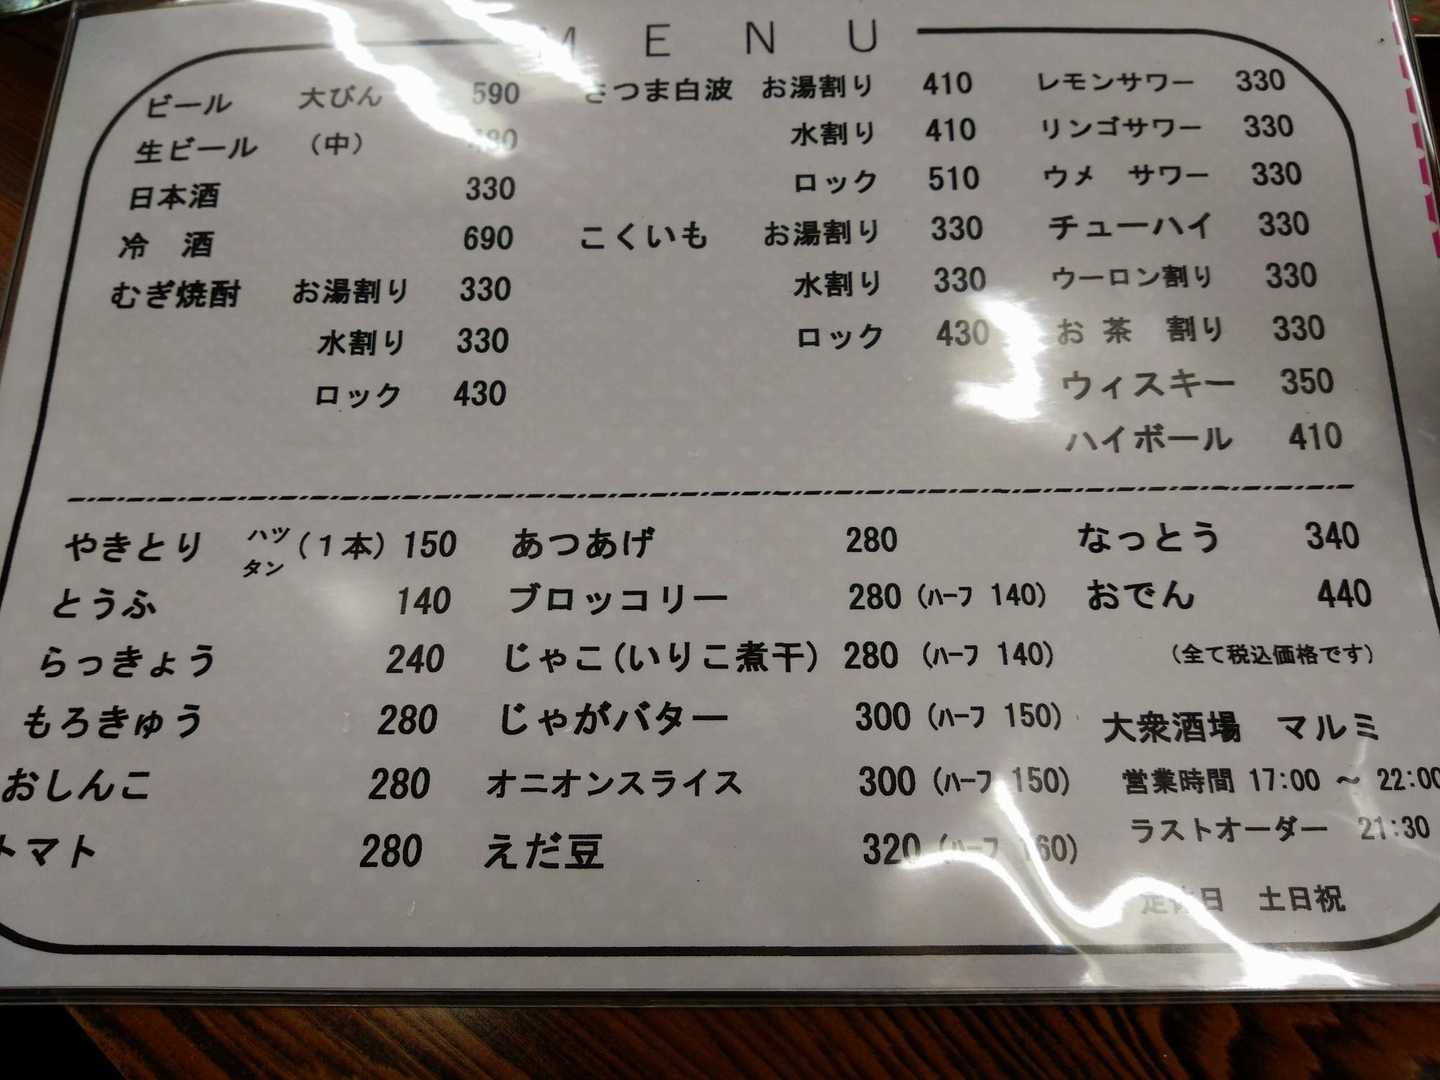 MENU
ビール 大びん 590
生ビール (中)
日本酒 330
冷 酒 690
むぎ焼酎 お湯割り 330
水割り 330
ロック 430
さつま白波 お湯割り 410
水割り 410
ロック 510
こくいも お湯割り 330
水割り 330
ロック 430
レモンサワー 330
リンゴサワー 330
ウメ サワー 330
チューハイ 330
ウーロン割り 330
お 茶 割り 330
ウィスキー 350
ハイボール 410
やきとり ハツ タン (1本) 150
とうふ 140
らっきょう 240
もろきゅう 280
おしんこ 280
トマト 280
あつあげ 280
ブロッコリー 280 (ハーフ 140)
じゃこ(いりこ煮干) 280 (ハーフ 140)
じゃがバター 300 (ハーフ 150)
オニオンスライス 300 (ハーフ 150)
えだ豆 320 (ハーフ 160)
なっとう 340
おでん 440
(全て税込価格です)
大衆酒場 マルミ
営業時間 17:00 ～ 22:00
ラストオーダー 21:30
定休日 土日祝